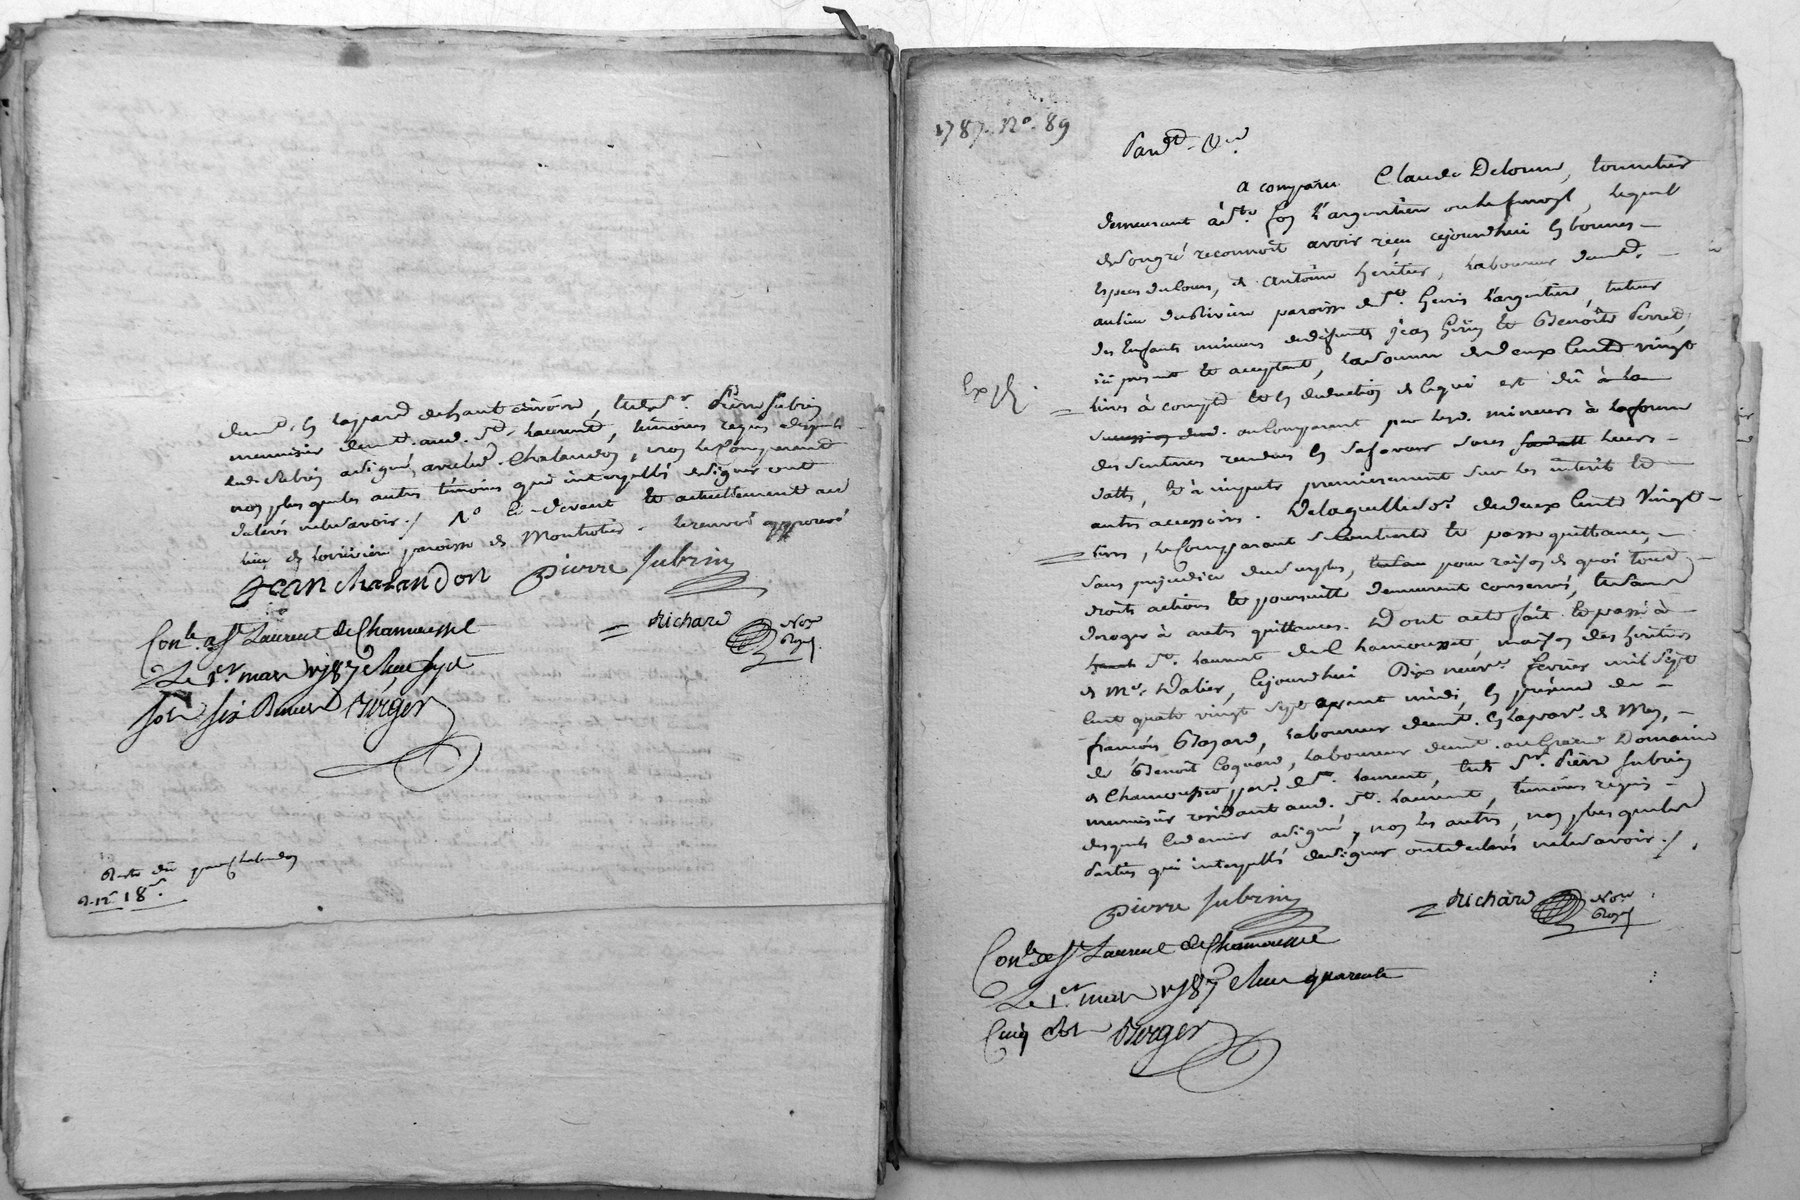 demt. en la par. de haute rivoire, et de sr. Pierre Subrin
menuisier demt. aud. St. Laurent, témoins requis desquels
led. Subrin a signé, avec led. Chalandon, non le comparant
non plus que les autres témoins qui interpellés de signer ont
déclarés ne le savoir ./ No. ci-devant et actuellement au
lieu de la rivière paroisse de Montrotier. le renvoi approuvé
Jean Chalandon Pierre Subrin
Richard Nore. Royal
Conle. a St Laurent de Chamousset
Le 1er. mars 1787
Berger
Reste dû par Chalandon
18s.
1787. No. 89
Pardt. &a.
a comparu Claude Delorme,
demeurant à St. foy l'argentière, lequel
de son gré reconnoit avoir reçu cejourdhui en bonnes
espèces de cours, de Antoine heritier, laboureur demt.
au lieu paroisse de St. Genis l'argentière, tuteur
des Enfants mineurs de défunts Jean et Benoîte Perret,
ici present et acceptant, la somme de deux Cents vingt
Exp.
livres à compte et en deduction de ce qui est dû à la
au comparant par lesd. mineurs à la forme
des sentences rendues en sa faveur sous leurs
dattes, et à imputer premierement sur les interêts et
autres accessoires. De laquelle se. de deux Cents Vingt
livres, le Comparant se Contente et passe quittance,
sans prejudice du surplus, pour raison de quoi tous
droits actions et poursuittes demeurent conservés, et sans
deroger à autres quittances. Dont acte fait et passé à
St. Laurent de Chamousset maison des heritiers
de Me. Dalier, Cejourdhui Dix neuve. fevrier mil sept
cent quatre vingt sept avant midi, en présence de
françois Bazard, laboureur demt. en la par. de Mey,
de Benoit Coquard, laboureur demt. au Grand Domaine
de Chamousset par. de St. Laurent, et de Sr. Pierre Subrin
menuisier residant aud. St. Laurent, témoins requis
desquels le dernier a signé, non les autres, non plus que les
Parties qui interpellés de signer ont declarés ne le savoir ./.
Pierre Subrin Richard Nore. Royal
Conle. de St Laurent de Chamousset
Le 1er. mars 1787 Reçu quarante
Cinq sols Berger